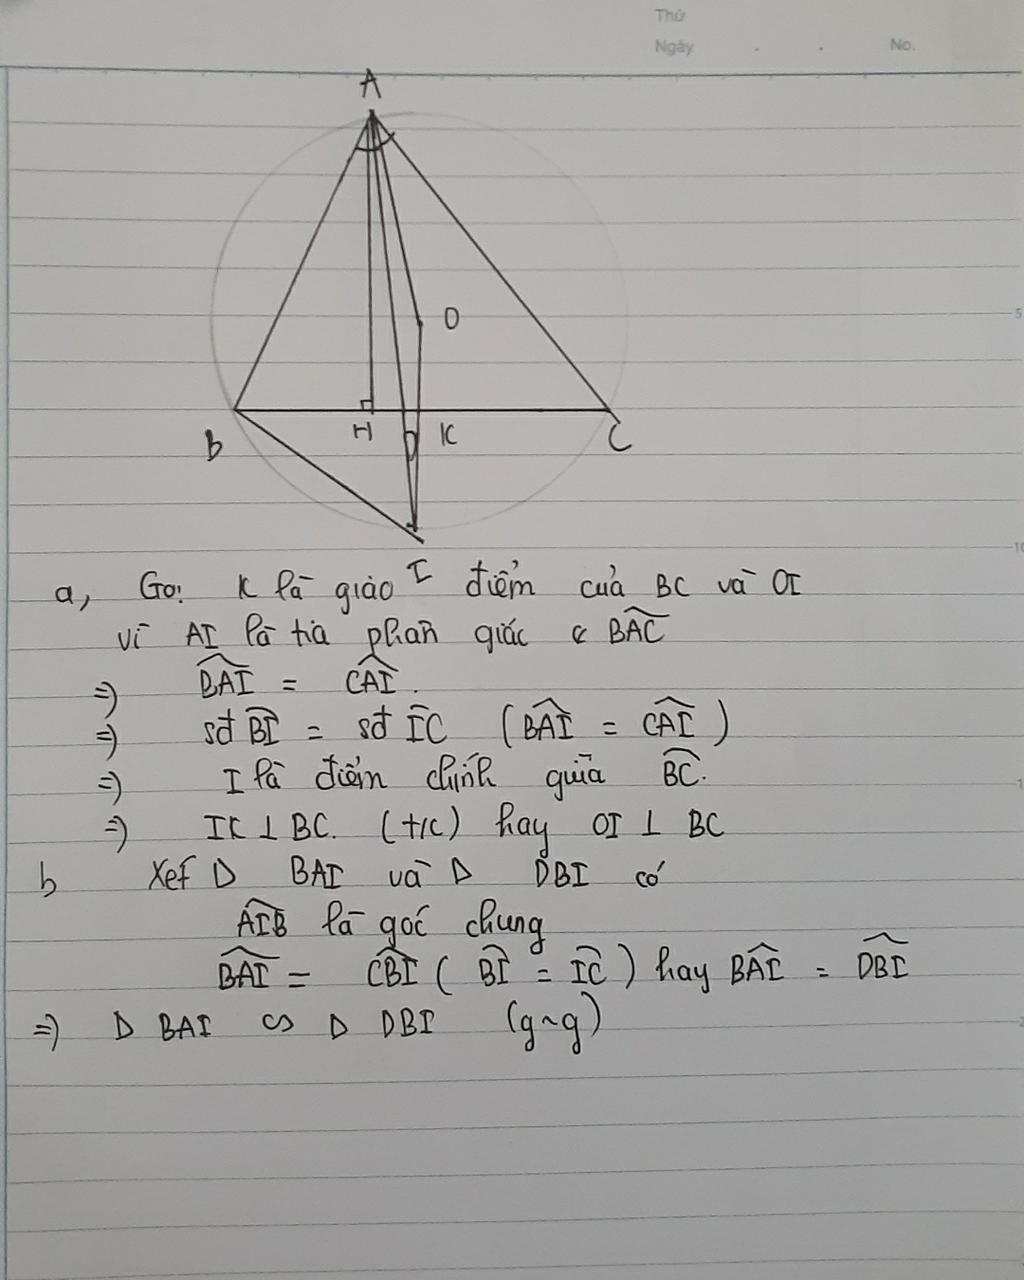 Thứ
Ngày . . No.
A
O
5
B H K C
I
10
a, Gọi K là giao điểm của BC và OI
vì AI là tia phân giác BAC
=> BAI = CAI.
=> sđ BI = sđ IC (BAI = CAI)
=> I là điểm chính giữa BC.
=> IK ⊥ BC. (t/c) hay OI ⊥ BC
b Xét Δ BAI và Δ DBI có
AIB là góc chung
BAI = CBI (BI = IC) hay BAI = DBI
=> Δ BAI ∽ Δ DBI (g~g)